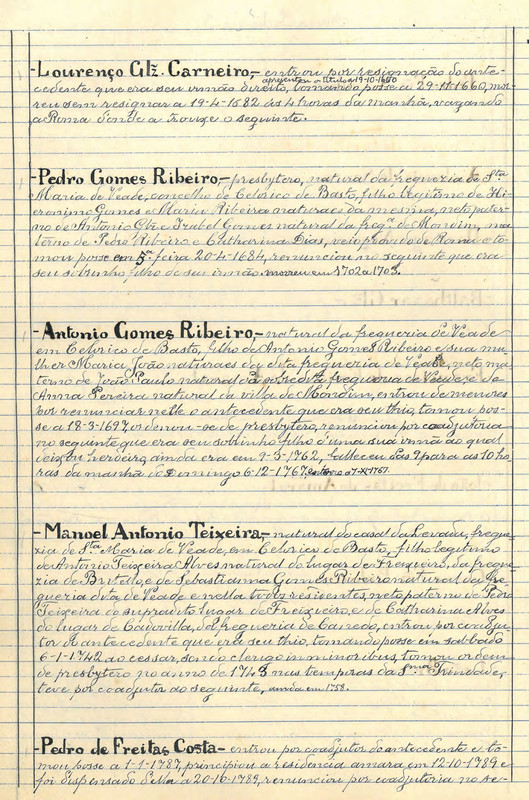 -Lourenço Glz. Carneiro,- entrou por resignação do ante-
apresentou o titulo a 19-10-1660
cedente que era seu irmão direito, tomando posse a 29-11-1660, mor-
reu sem resignar a 19-4-1682 ás 4 horas da manhã, vagando
a Roma d'onde a trouxe o seguinte.
-Pedro Gomes Ribeiro,- presbytero, natural da freguezia de Sta
Maria de Veade, concelho de Celorico de Basto, filho legitimo de Hi-
eronimo Gomes e Maria Ribeira naturaes da mesma, neto pater-
no de Antonio Glz e Izabel Gomes natural da freg. de Mondim, ma-
terno de Pedro Ribeiro e Catharina Dias, veio provido de Roma e to-
mou posse em 5ª feira 20-4-1684, renunciou no seguinte que era
seu sobrinho filho de seu irmão. morreu em 1702 a 1703.
-Antonio Gomes Ribeiro- natural da freguezia de Veade
em Celorico de Basto, filho de Antonio Gomes Ribeiro e sua mu-
lher Maria João naturaes da dita freguezia de Veade, neto ma-
terno de João Paulo natural da sobredita freguezia de Veade e de
Anna Pereira natural da villa de Mondim, entrou de menores
por renunciar nelle o antecedente que era seu thio, tomou pos-
se a 18-3-1697, ordenou-se de presbytero, renunciou por coadjutoria
no seguinte que era seu sobrinho filho d'uma sua irmã ao qual
deixou herdeiro, ainda era em 9-3-1762, falleceu das 9 para as 10 ho-
ras da manhã de Domingo 6-12-1767, a 7-XI-1767.
-Manoel Antonio Teixeira,- natural do casal da Levada, fregue-
zia de Sta Maria de Veade, em Celorico de Basto, filho legitimo
de Antonio Teixeira Alves natural do lugar de Freixieiro, da fregue-
zia de Britelo, e de Sebastianna Gomes Ribeiro natural da fre-
guezia dita, de Veade e nella todos residentes, neto paterno de Pedro
Teixeira do supradito lugar de Freixieiro, e de Catharina Alves
do lugar de Cavorilla, da freguezia de Canedo, entrou por coadju-
tor do antecedente que era seu thio, tomando posse em sabbado
6-1-1742 ao cessar, sendo clerigo in minoribus, tomou ordem
de presbytero no anno de 1743 nas temporas da Sma Trindade,
teve por coadjutor ao seguinte, ainda em 1758.
-Pedro de Freitas Costa- entrou por coadjutor do antecedente e to-
mou posse a 1-1-1787, principiou a residencia amara em 12-10-1789 e
foi dispensado della a 20-10-1789, renunciou por coadjutoria no se-